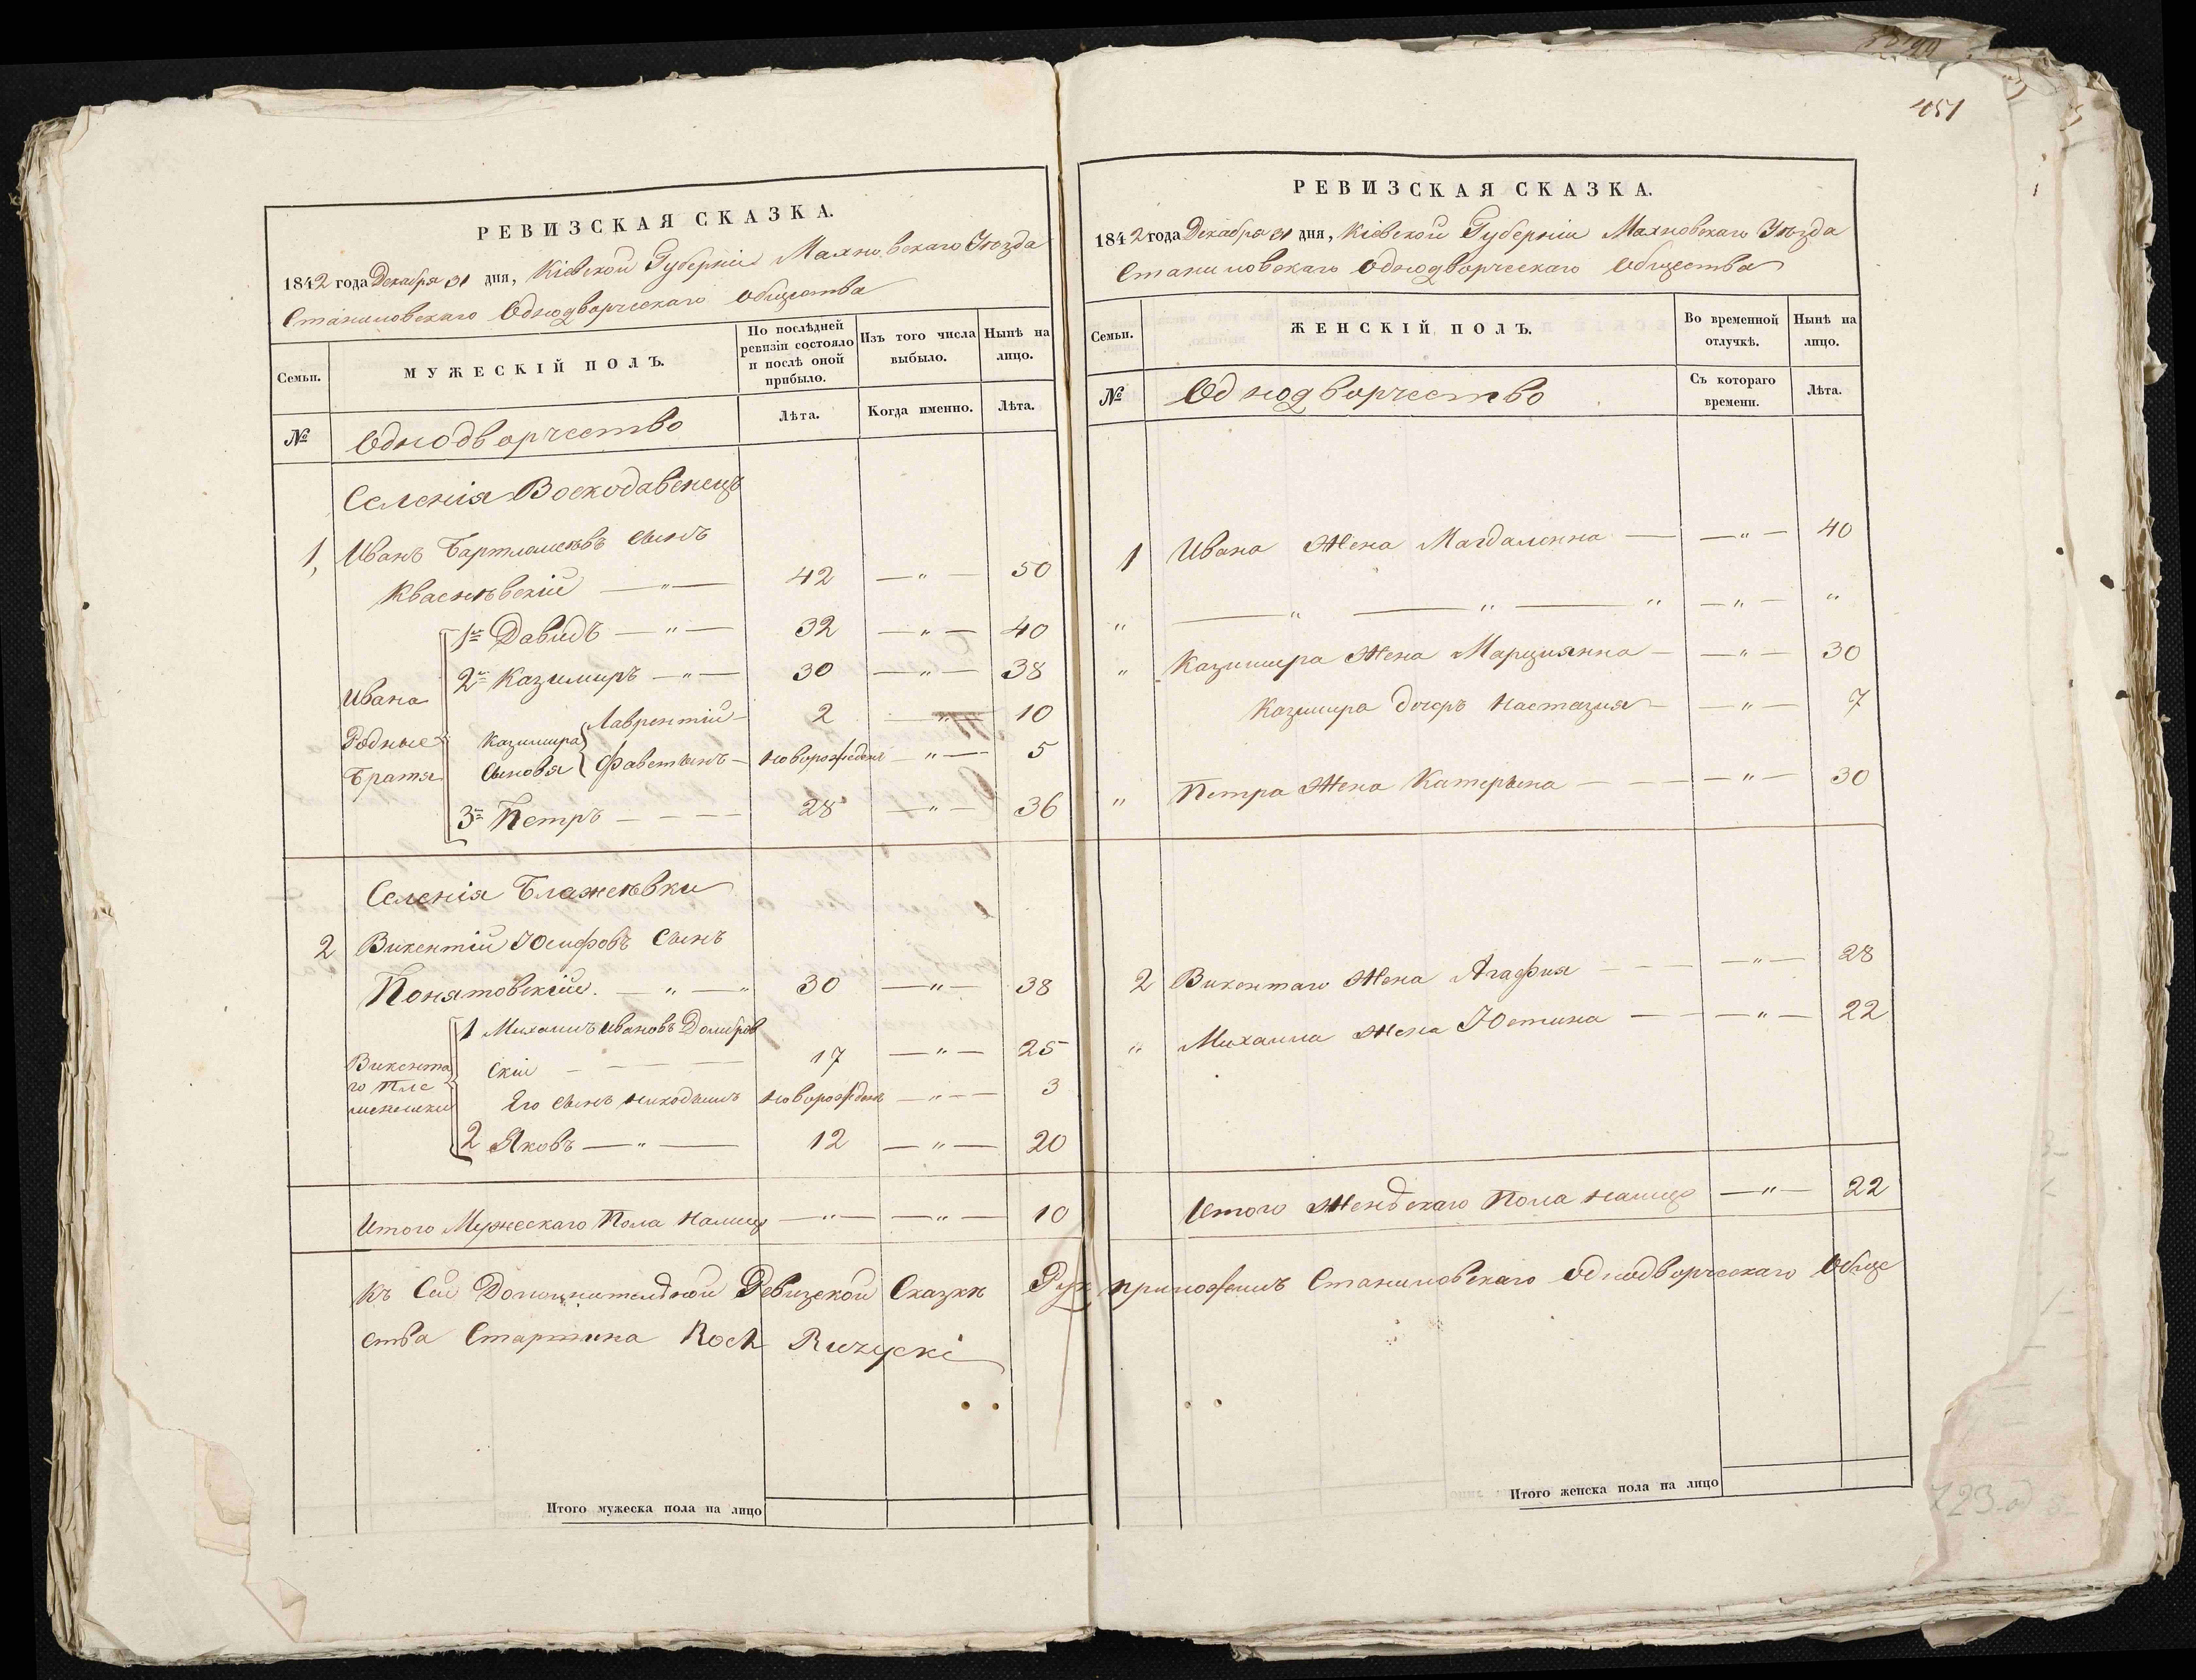 451
РЕВИЗСКАЯ СКАЗКА.
1842 года Декабря 31 дня, Кіевской Губерніи Махновскаго Уѣзда
Станиловскаго Однодворческаго Общества
Семьи.
МУЖЕСКІЙ ПОЛЪ.
По послѣдней ревизіи состояло и послѣ оной прибыло.
Изъ того числа выбыло.
Нынѣ на лицо.
№
Однодворчество
Лѣта.
Когда именно.
Лѣта.
Селенія Воскодавенецъ
1, Иванъ Бартломеѣвъ сынъ
Кваснѣвскій — " — 42 — " — 50
1й Давидъ — " — 32 — " — 40
2й Казимиръ — " — 30 — " — 38
Ивана Родные Братя
Казимира Сыновя
Лаврентій — 2 — " — 10
Фавстынъ — новорожденъ — " — 5
3й Петръ — — — 28 — " — 36
Селенія Блажеѣвки
2 Викентій Юсифовъ Сынъ
Понятовскій. — " — " 30 — " — 38
Викента
го Пле
мяники
1 Михаилъ Ивановъ Домбров
скій — — — 17 — " — 25
Его сынъ Никодымъ новорожденъ — " — 3
2 Яковъ — " — 12 — " — 20
Итого Мужескаго Пола Налицо — " — — " — 10
Къ Сей Дополнителдной Ревизской Сказкѣ Рук
ства Старшина Roch Ruzycki
Итого мужеска пола на лицо
РЕВИЗСКАЯ СКАЗКА.
1842 года Декабря 31 дня, Кіевской Губерніи Махновскаго Уѣзда
Станиловскаго Однодворческаго Общества
Семьи.
ЖЕНСКІЙ ПОЛЪ.
Во временной отлучкѣ.
Нынѣ на лицо.
№
Однодворчество
Съ котораго времени.
Лѣта.
1 Ивана Жена Магдаленна — — " — 40
" — " — " — " — " — "
" Казимира Жена Марциянна — — " — 30
Казимира дочеръ Настазия — — " — 7
" Петра Жена Катерына — — — " — 30
2 Викентаго Жена Агафия — — — " — 28
" Михаила Жена Юстина — — — " — 22
Итого Женскаго Пола налицо — " — 22
приложилъ Станиловскаго однодворческаго Обще
Итого женска пола на лицо